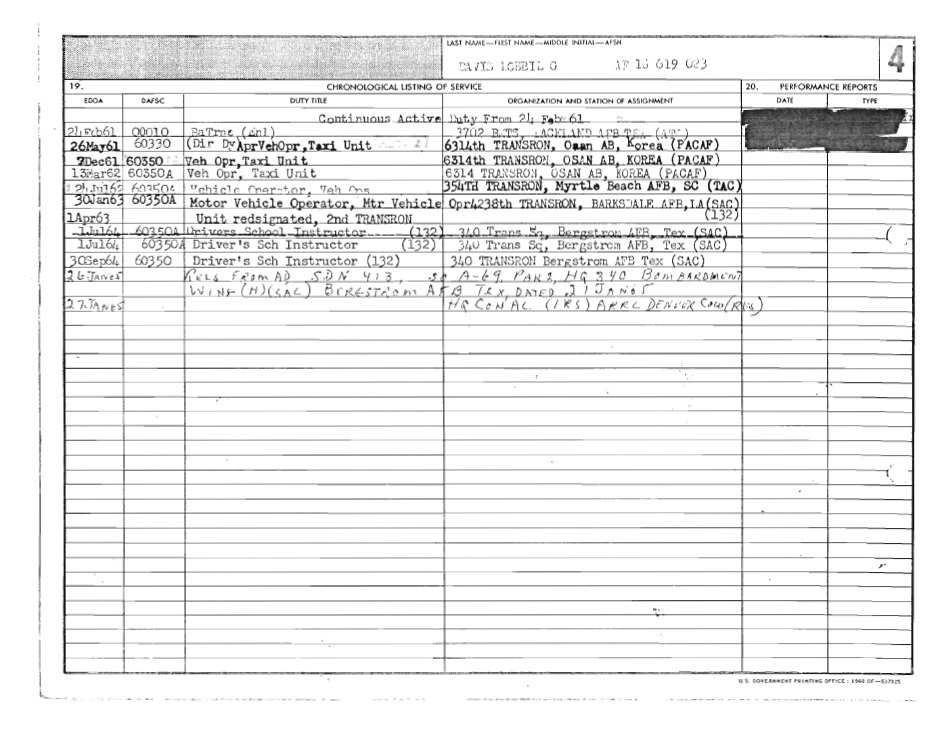 LAST NAME—FIRST NAME—MIDDLE INITIAL—AFSN
4
DAVID G AF 16 619 023
19. CHRONOLOGICAL LISTING OF SERVICE 20. PERFORMANCE REPORTS
EDOA DAFSC DUTY TITLE ORGANIZATION AND STATION OF ASSIGNMENT DATE TYPE
Continuous Active Duty From 24 Feb 61
24Feb61 00010 BaTrne (Enl) 3702 LACKLAND AFB TEX
26May61 60330 (Dir Dy AprVehOpr,Taxi Unit 6314th TRANSRON, Osan AB, Korea (PACAF)
7Dec61 60350 Veh Opr,Taxi Unit 6314th TRANSRON, OSAN AB, KOREA (PACAF)
13Mar62 60350A Veh Opr, Taxi Unit 6314 TRANSRON, OSAN AB, KOREA (PACAF)
24Jul62 60350A Vehicle Operator, Veh Ops 354TH TRANSRON, Myrtle Beach AFB, SC (TAC)
30Jan63 60350A Motor Vehicle Operator, Mtr Vehicle Opr 4238th TRANSRON, BARKSDALE AFB, LA(SAC)
(132)
1Apr63 Unit redsignated, 2nd TRANSRON
1Jul64 60350A Drivers School Instructor (132) 340 Trans Sq, Bergstrom AFB, Tex (SAC)
1Jul64 60350A Driver's Sch Instructor (132) 340 Trans Sq, Bergstrom AFB, Tex (SAC)
30Sep64 60350 Driver's Sch Instructor (132) 340 TRANSRON Bergstrom AFB Tex (SAC)
26JAN65 RELS FROM AD SDN 413, SO A-69, PAR 2, HQ 340 BOMBARDMENT
WING (M)(SAC) BERGSTROM AFB TEX, DATED 21JAN65
27JAN65 HQ CONAC (IRS) ARRC DENVER COLO (RES)
U.S. GOVERNMENT PRINTING OFFICE : 1960 OF—